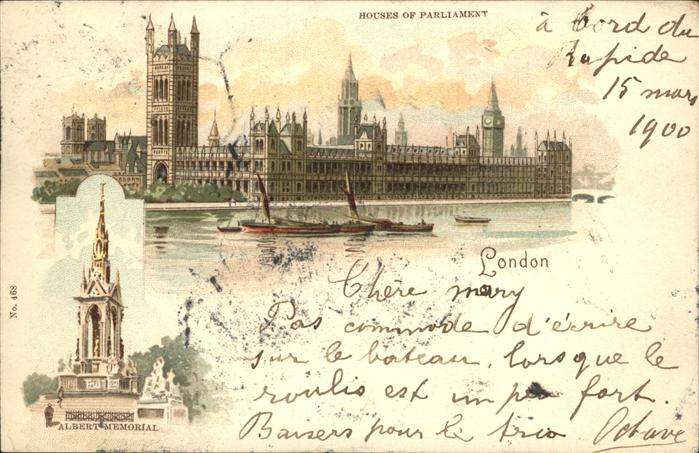 HOUSES OF PARLIAMENT
à bord du
Rapide
15 mars
1900
London
Chère mary
Pas commode d'écrire
sur le bateau, lorsque le
roulis est un peu fort.
Baisers pour le trio Octave
No. 468
ALBERT MEMORIAL